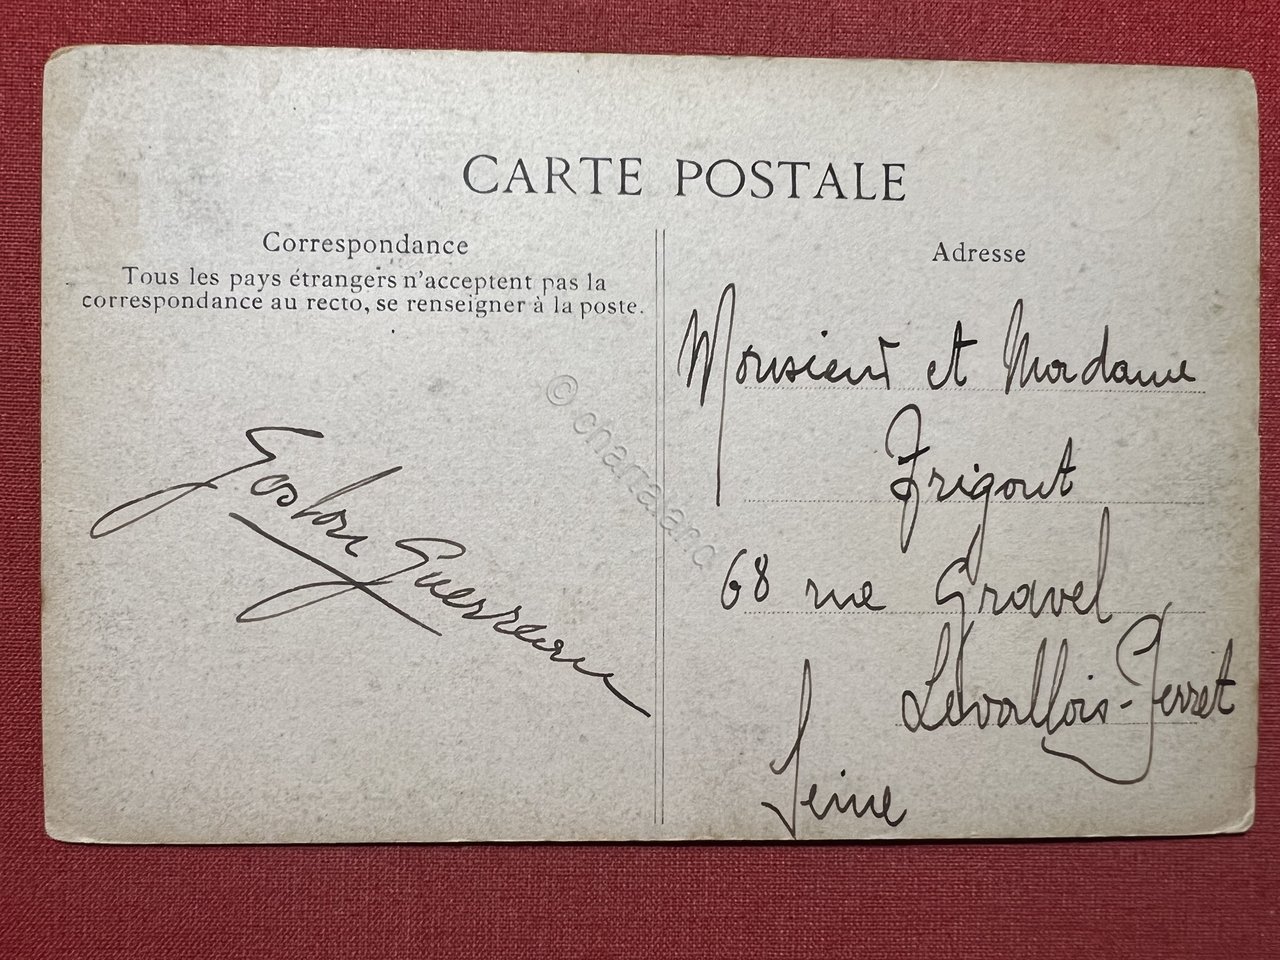 CARTE POSTALE
Correspondance
Tous les pays étrangers n'acceptent pas la
correspondance au recto, se renseigner à la poste.
Gaston Guerreau
Adresse
Monsieur et Madame
Frigout
68 rue Gravel
Levallois-Perret
Seine
© charraland